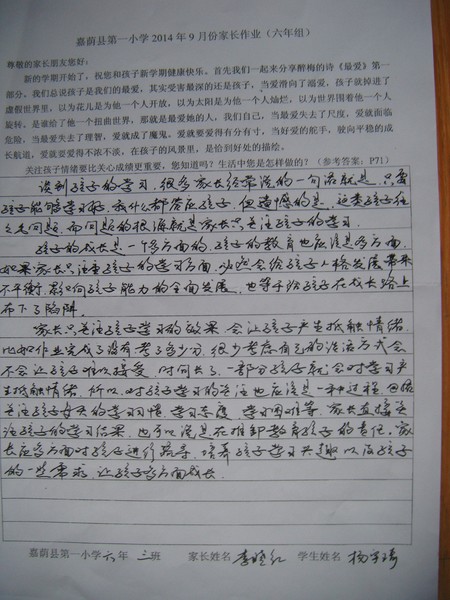 嘉荫县第一小学 2014 年 9 月份家长作业（六年组）
尊敬的家长朋友您好：
新的学期开始了，祝您和孩子新学期健康快乐。首先我们一起来分享醉梅的诗《最爱》第一
部分。我们总说孩子是我们的最爱，其实受害最深的还是孩子，当爱滑向了溺爱，孩子就掉进了
虚假世界里，以为花儿是为他一个人开放，以为太阳是为他一个人灿烂，以为世界围着他一个人
旋转。是谁给了他一个扭曲世界，那就是最爱她的人，我们自己，当最爱失去了尺度，爱就面临
危险，当最爱失去了理智，爱就成了魔鬼。爱就要爱得有分有寸，当好爱的舵手，驶向平稳的成
长航道，爱就要爱得不浓不淡，在孩子的风景里，是恰到好处的描绘。
关注孩子情绪要比关心成绩更重要，您知道吗？生活中您是怎样的做？（参考答案：P71）
谈到孩子的学习，很多家长经常说的一句话就是，只要
孩子能够学习好，我什么都答应孩子，但遗憾的是，这类孩子往
往会问题，而问题的根源就是家长只关注孩子的学习。
孩子的成长是一个多方面的，孩子的教育也应该是多方面，
如果家长只注重孩子的学习方面，必然会给孩子人格发展带来
不平衡，影响孩子能力的全面发展，也等于给孩子在成长路上
布下了陷阱。
家长只关注孩子学习的效果，会让孩子产生抵触情绪，
比如作业完成了没有，考了多少分，很少考虑自己的说话方式会
不会让孩子难以接受，时间长了，一部分孩子就会对学习产
生抵触情绪，所以，对孩子学习的关注也应该是一种过程，
关注孩子每天的学习习惯，学习态度，学习困难等，家长直接关
注孩子的学习结果，也可以说是在推卸教育孩子的责任，家
长应多方面对孩子进行疏导，培养孩子学习兴趣以及孩子
的一些需求，让孩子多方面成长。
嘉荫县第一小学六年 三班 家长姓名 李晓红 学生姓名 杨